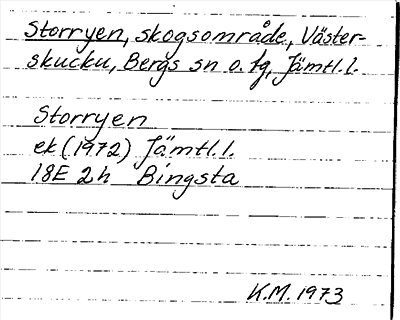 Storryen, skogsområde, Väster-
skucku, Bergs sn o. tg, Jämtl.l.
Storryen
ek (1972) Jämtl.l.
18E 2h Bingsta
K.M. 1973